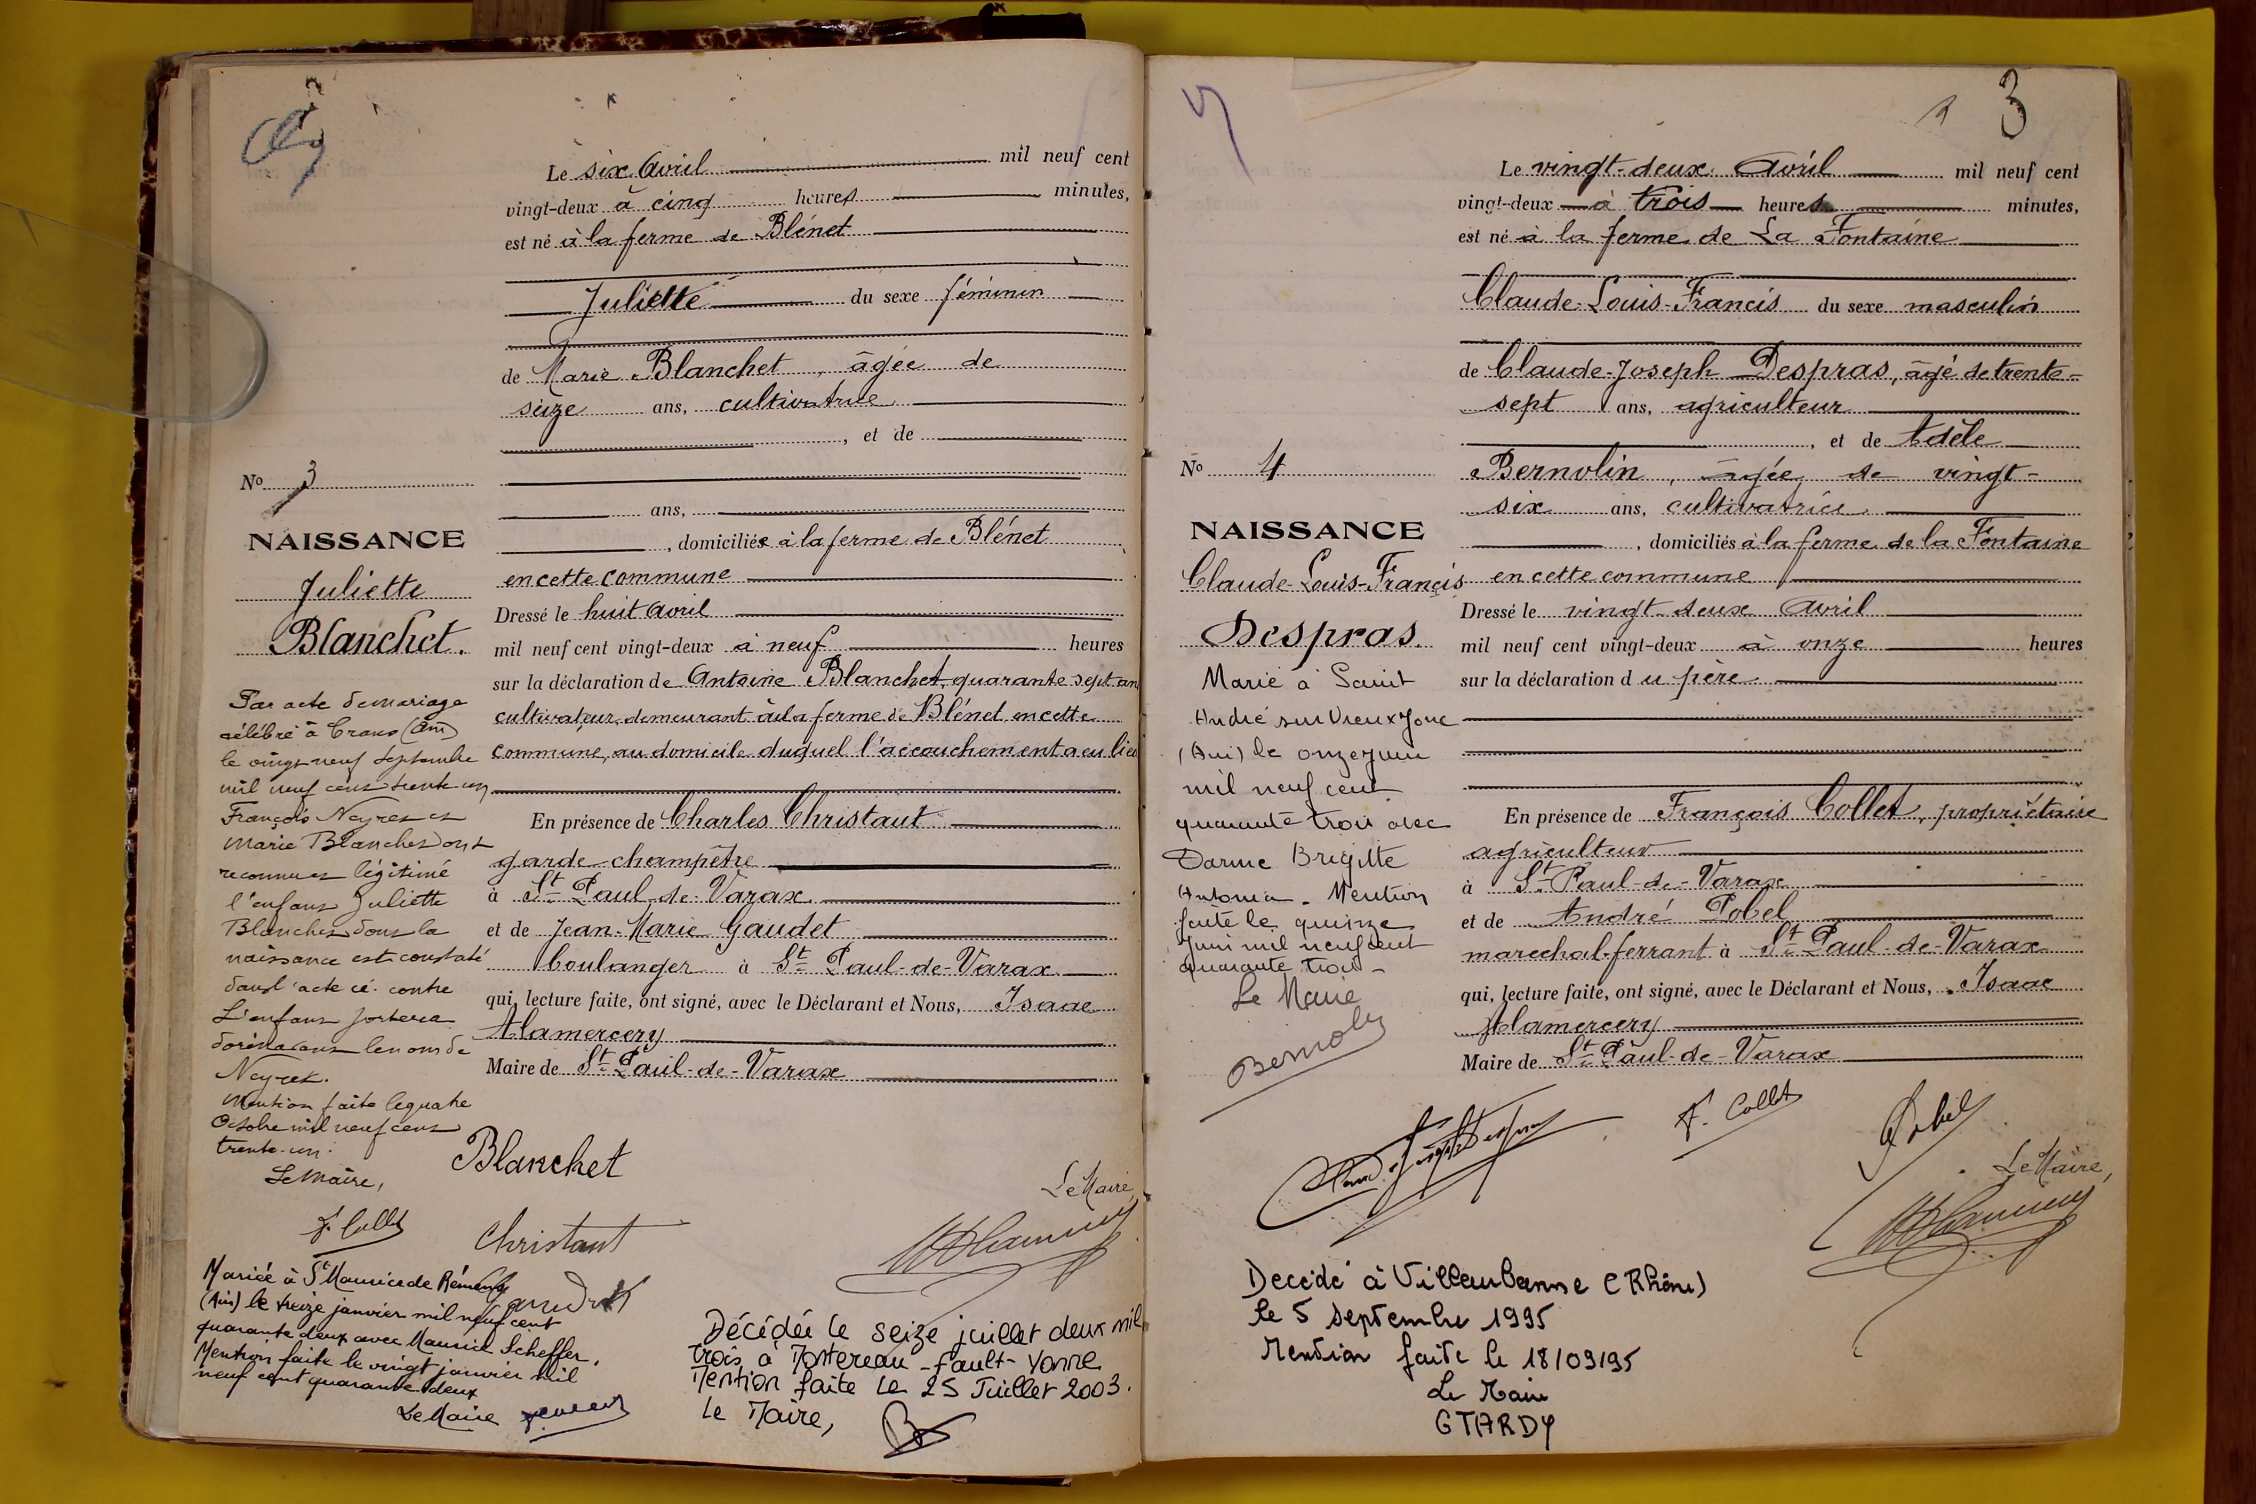 Le six Avril mil neuf cent
vingt-deux à cinq heures minutes,
est né à la ferme de Blénet
Juliette du sexe féminin
de Marie Blanchet, âgée de
seize ans, cultivatrice
, et de
ans,
, domiciliée à la ferme de Blénet
en cette commune
Dressé le huit Avril
mil neuf cent vingt-deux à neuf heures
sur la déclaration de Antoine Blanchet, quarante sept ans
cultivateur, demeurant à la ferme de Blénet en cette
commune, au domicile duquel l'accouchement a eu lieu
En présence de Charles Christaut
garde-champêtre
à St Paul-de-Varax
et de Jean-Marie Gaudet
boulanger à St Paul-de-Varax
qui, lecture faite, ont signé, avec le Déclarant et Nous, Isaac
Alamercery
Maire de St Paul-de-Varax
No 3
NAISSANCE
Juliette
Blanchet.
Par acte de mariage
célébré à Crans (Ain)
le vingt neuf Septembre
mil neuf cent trente un
François Neyret et
Marie Blanchet ont
reconnu et légitimé
l'enfant Juliette
Blanchet dont la
naissance est constaté
dans l'acte ci-contre
L'enfant portera
dorénavant le nom de
Neyret.
Mention faite le quatre
Octobre mil neuf cent
trente-un.
Le Maire,
F. Collet
Blanchet
Christaut
Gaudet
Le Maire
Mariée à St Maurice de Rémens
(Ain) le treize janvier mil neuf cent
quarante deux avec Maurice Scheffer.
Mention faite le vingt janvier mil
neuf cent quarante deux
Le Maire
Décédée le seize juillet deux mil
trois à Montereau-Fault-Yonne
Mention faite le 25 Juillet 2003.
Le Maire,
3
Le vingt-deux Avril mil neuf cent
vingt-deux à trois heures minutes,
est né à la ferme de La Fontaine
Claude-Louis-Francis du sexe masculin
de Claude-Joseph Despras, âgé de trente-
sept ans, agriculteur
, et de Adèle
Bernolin, âgée de vingt-
six ans, cultivatrice
, domiciliés à la ferme de la Fontaine
en cette commune
Dressé le vingt-deux Avril
mil neuf cent vingt-deux à onze heures
sur la déclaration du père
En présence de François Collet, propriétaire
agriculteur
à St Paul-de-Varax
et de André Pobel
marechal-ferrant à St Paul-de-Varax
qui, lecture faite, ont signé, avec le Déclarant et Nous, Isaac
Alamercery
Maire de St Paul-de-Varax
No 4
NAISSANCE
Claude-Louis-Francis
Despras.
Marié à Saint
André sur Vieux Jonc
(Ain) le onze juin
mil neuf cent
quarante trois avec
Darme Brigitte
Antonia. Mention
faite le quinze
Juin mil neuf cent
quarante trois-
Le Maire
F. Collet
Pobel
Le Maire,
Decédé à Villeurbanne (Rhône)
le 5 septembre 1995
Mention faite le 18/09/95
Le Maire
G TARDY